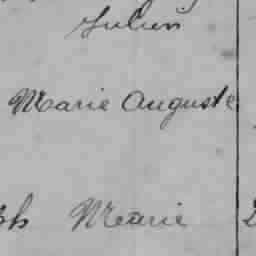 Julien
Marie Auguste
ph Marie 2